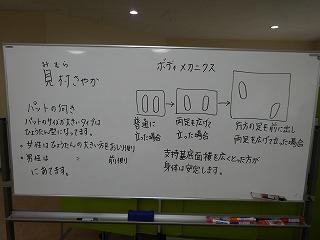 みむら
見村さやか
ボディメカニクス
パットの向き
パットのサイズが大きいタイプは
ひょうたん型になってます。
・女性はひょうたんの大きい方をおしり側
・男性は 〃 前側
にあてます。
普通に
立った場合
両足を広げて
立った場合
片方の足を前に出し
両足を広げて立った場合
支持基底面積を広くとった方が
身体は安定します。